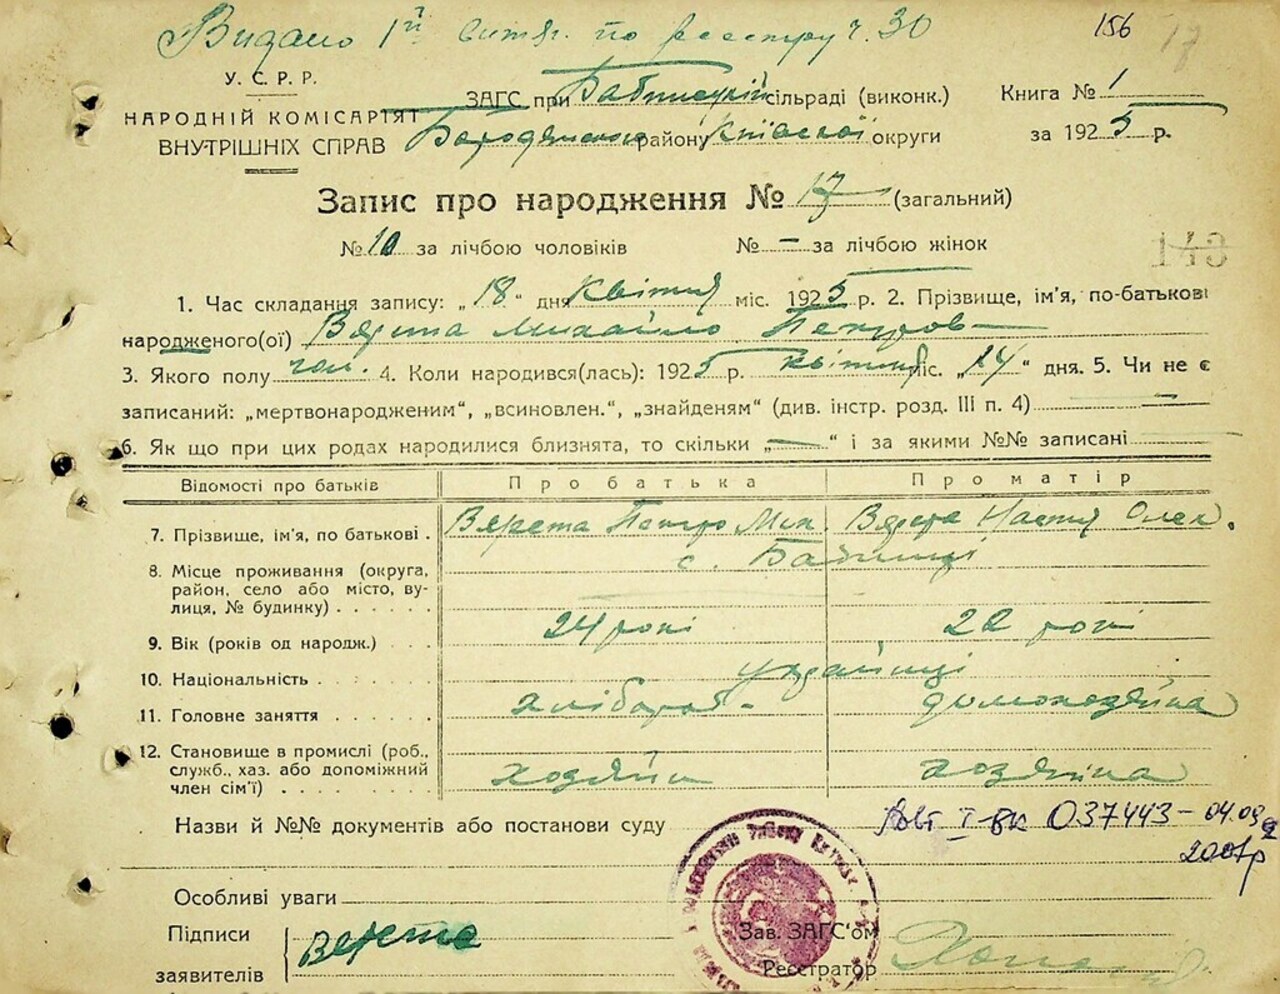 Видано 1й витяг. по реєстру ч. 30
156
17
У. С. Р. Р.
НАРОДНІЙ КОМІСАРІЯТ
ВНУТРІШНІХ СПРАВ
ЗАГС при Бабинецькій сільраді (виконк.)
Бородянського району Київської округи
Книга № 1
за 1925 р.
Запис про народження № 17 (загальний)
№ 10 за лічбою чоловіків № — за лічбою жінок
1. Час складання запису: „18" дня квітня міс. 1925 р. 2. Прізвище, ім'я, по-батькові
народженого(ої) Вярета Михайло Петров
3. Якого полу чол. 4. Коли народився(лась): 1925 р. квітня міс. „14" дня. 5. Чи не є
записаний: „мертвонародженим", „всиновлен.", „знайденям" (див. інстр. розд. III п. 4) —
6. Як що при цих родах народилися близнята, то скільки „—" і за якими №№ записані
Відомості про батьків Про батька Про матір
7. Прізвище, ім'я, по батькові . Вярета Петро Мих. Вярета Настя Олек.
8. Місце проживання (округа, с. Бабинці
район, село або місто, ву-
лиця, № будинку)
9. Вік (років од народж.) 24 рокі 22 рокі
10. Національність українці
11. Головне заняття хлібороб - домохозяйка
12. Становище в промислі (роб.,
служб., хаз. або допоміжний хозяїн хозяйка
член сім'ї)
Назви й №№ документів або постанови суду
037443 – 04.09
2001р
Особливі уваги
Підписи
заявителів
Верета
Зав. ЗАГС'ом
Реєстратор